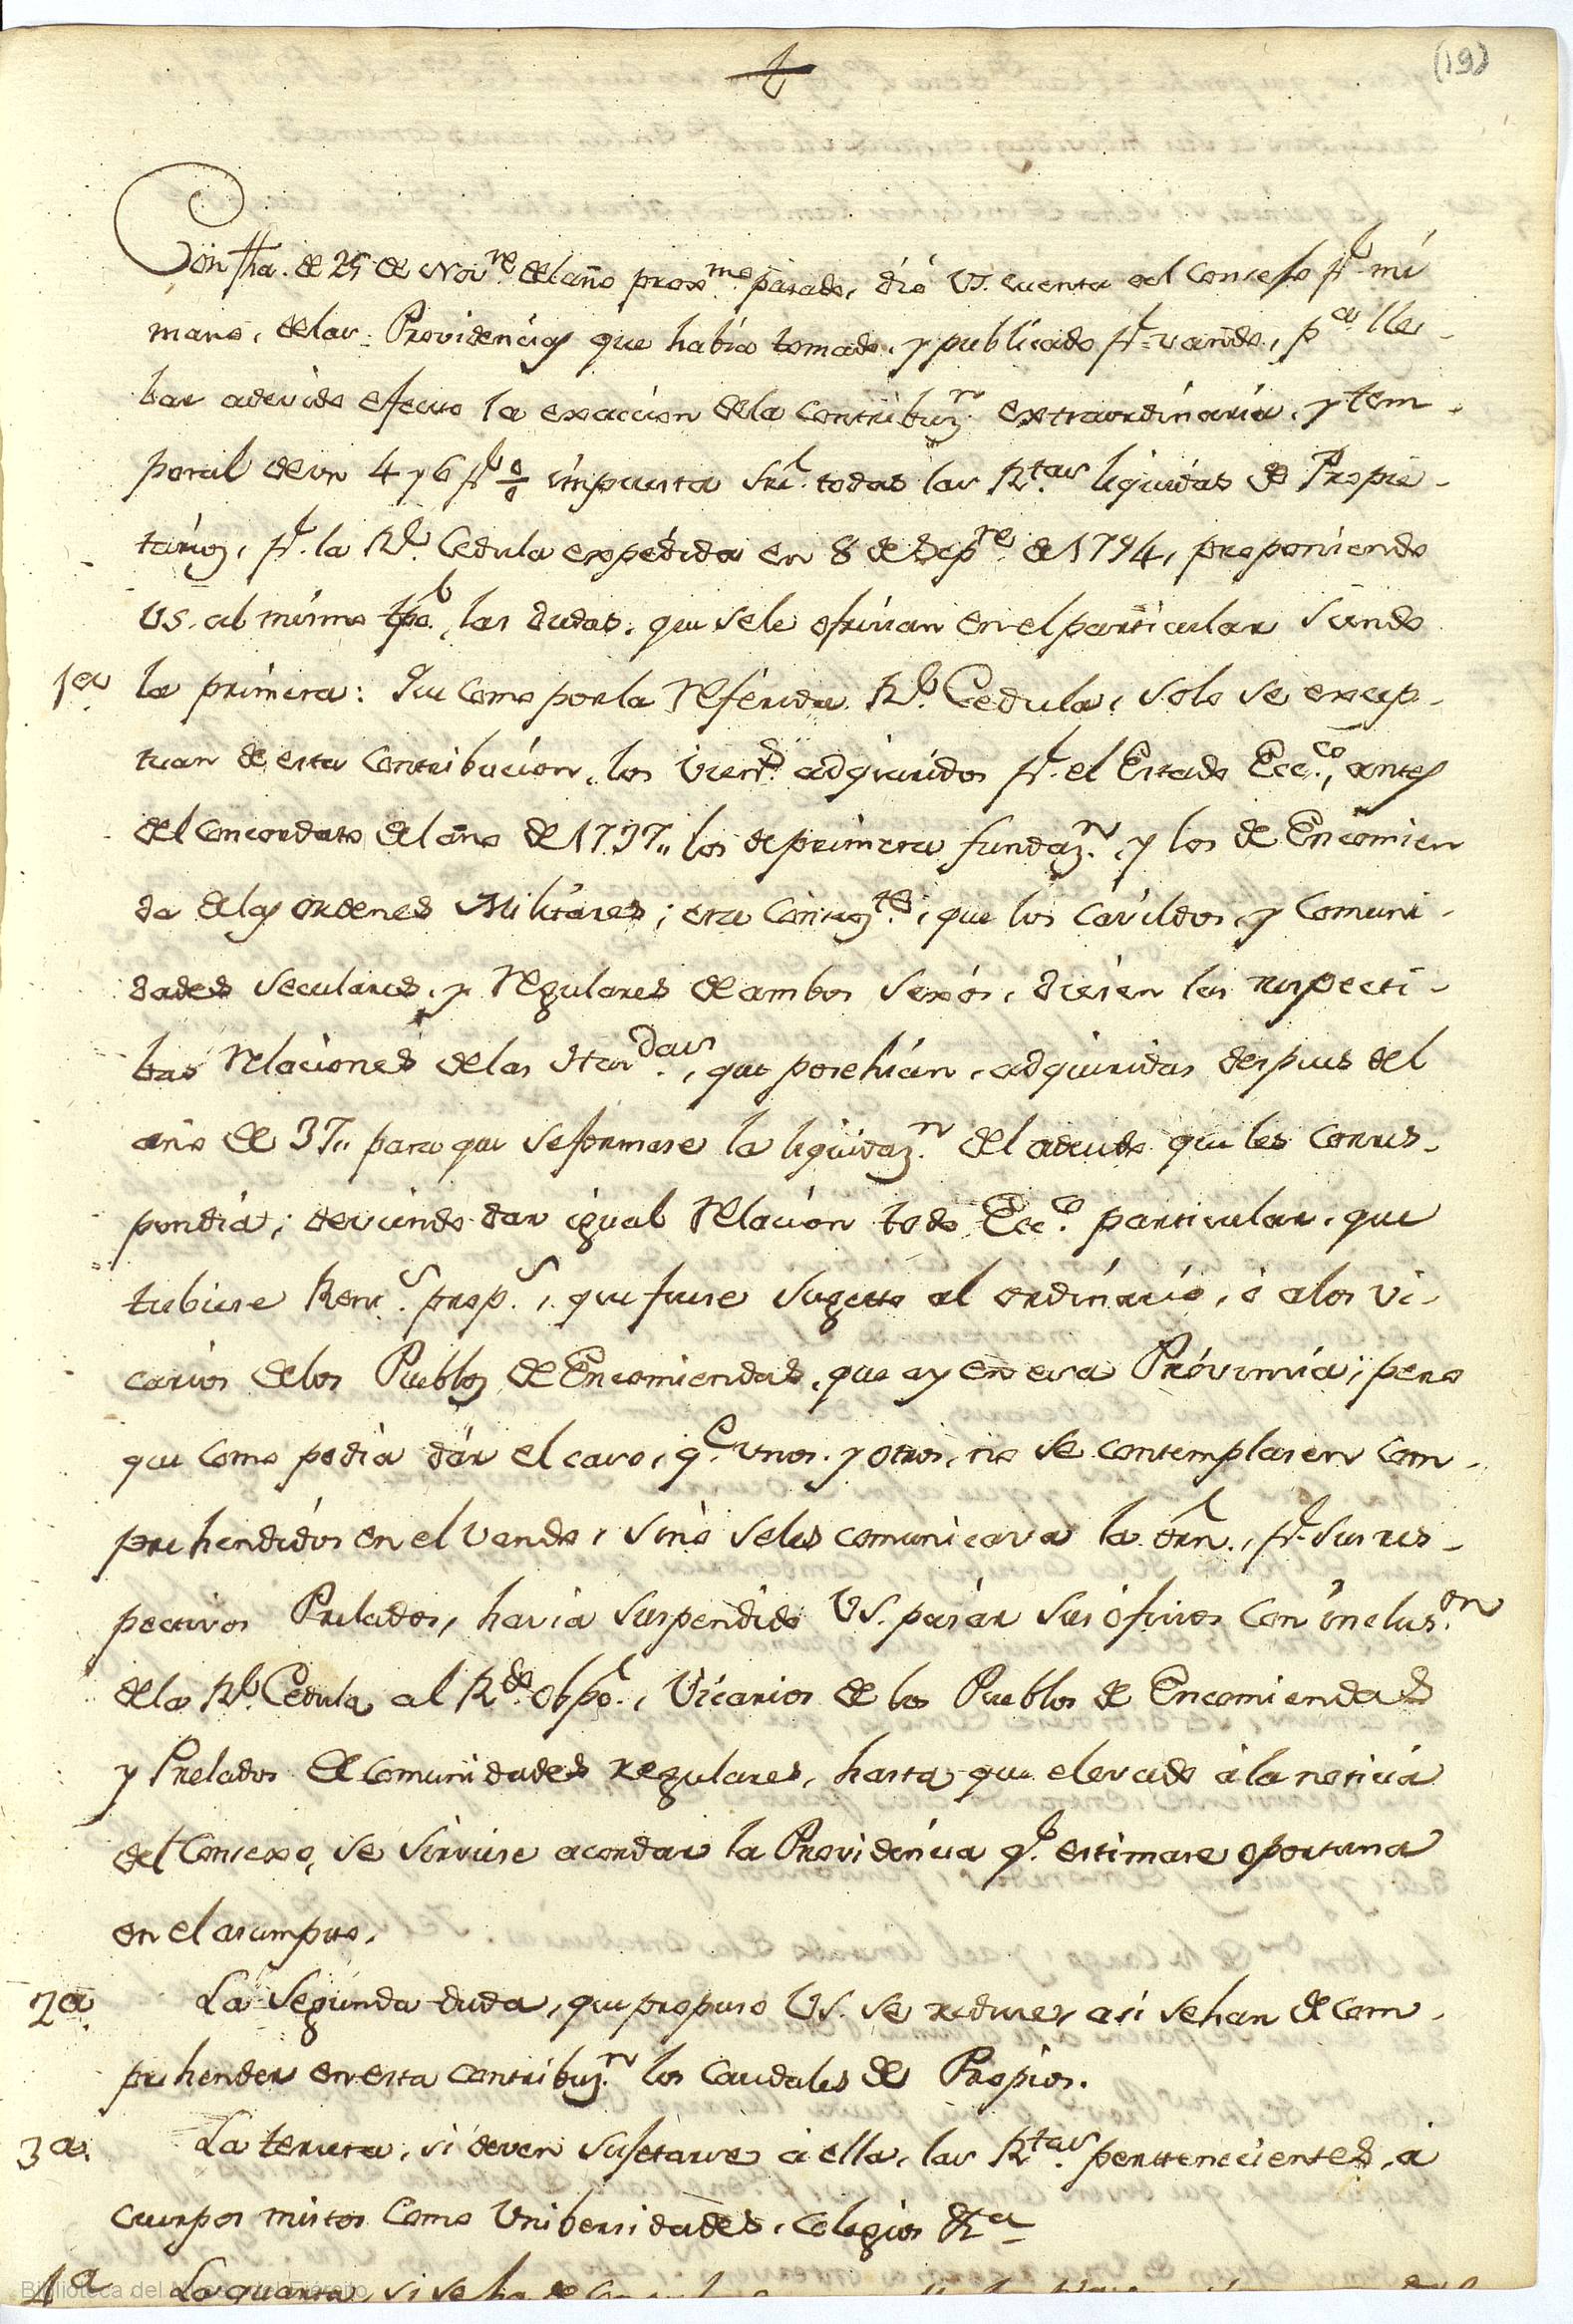 (19)
Con fha. de 25 de Nov.re del año prox.mo pasado, dió VS. cuenta al Consejo pr. mi
mano, delas Providencias que había tomado, y publicado pr. vando, pa. lle-
bar adevido efecto la exaccion dela contribuz.n extraordinaria, y tem-
poral deun 4 y 6 pr. % impuesta sre. todas las Rtas. liquidas de Propie-
tarios, pr. la Rl. Cedula expedida en 8 de Sepre. de 1794, proponiendo
VS. al mismo tpo. las dudas, que sele ofrecian en el particular siendo
1a. la primera: Que como por la referida Rl. Cedula, solo se excep-
tuan de esta contribucion, los vienes adquiridos pr. el Estado Ecc.co, antes
del concordato del año de 1737,, los de primera fundaz.n, y los de Encomien
da delas ordenes Militares; era consigte., que los Cavildos, y Comuni-
dades seculares, y regulares de ambos sexos, diesen las respecti-
bas relaciones delas Haz.das, que posehian, adquiridas despues del
año de 37,, para que se formase la liquidaz.n del adeudo que les corres-
pondia; deviendo dar igual relacion todo Ecc.co particular, que
tubiese Rent.s prop.s, que fuese sugetto al ordinario, ó alos Vi-
carios delos Pueblos de Encomiendas, que ay en esa Provincia; pero
que como podia dár el caso, qe. unos, y otros, no se contemplasen com-
prehendidos en el Vando, sino seles comunicava la orn., pr. sus res-
pectivos Prelados, havia suspendido VS. pasár sus oficios con inclus.on
dela Rl. Cedula al Rdo. Obpo., Vicarios de los Pueblos de Encomiendas
y Prelados de comunidades regulares, hasta que elevado á la noticia
del Consexo, se sirviese acordar la Providencia qe. estimase oportuna
en el asumpto.
2a. La segunda duda, que propuso VS. se reduce, asi se han de com-
prehender en esta contribuz.n los caudales de Propios.
3a. La tercera, si deven sujetarse á ella, las Rtas. perttenecientes, á
cuerpos mistos como Unibersidades, Colegios &a
4a La quarta, si se ha de
Biblioteca del Museo del Ejército